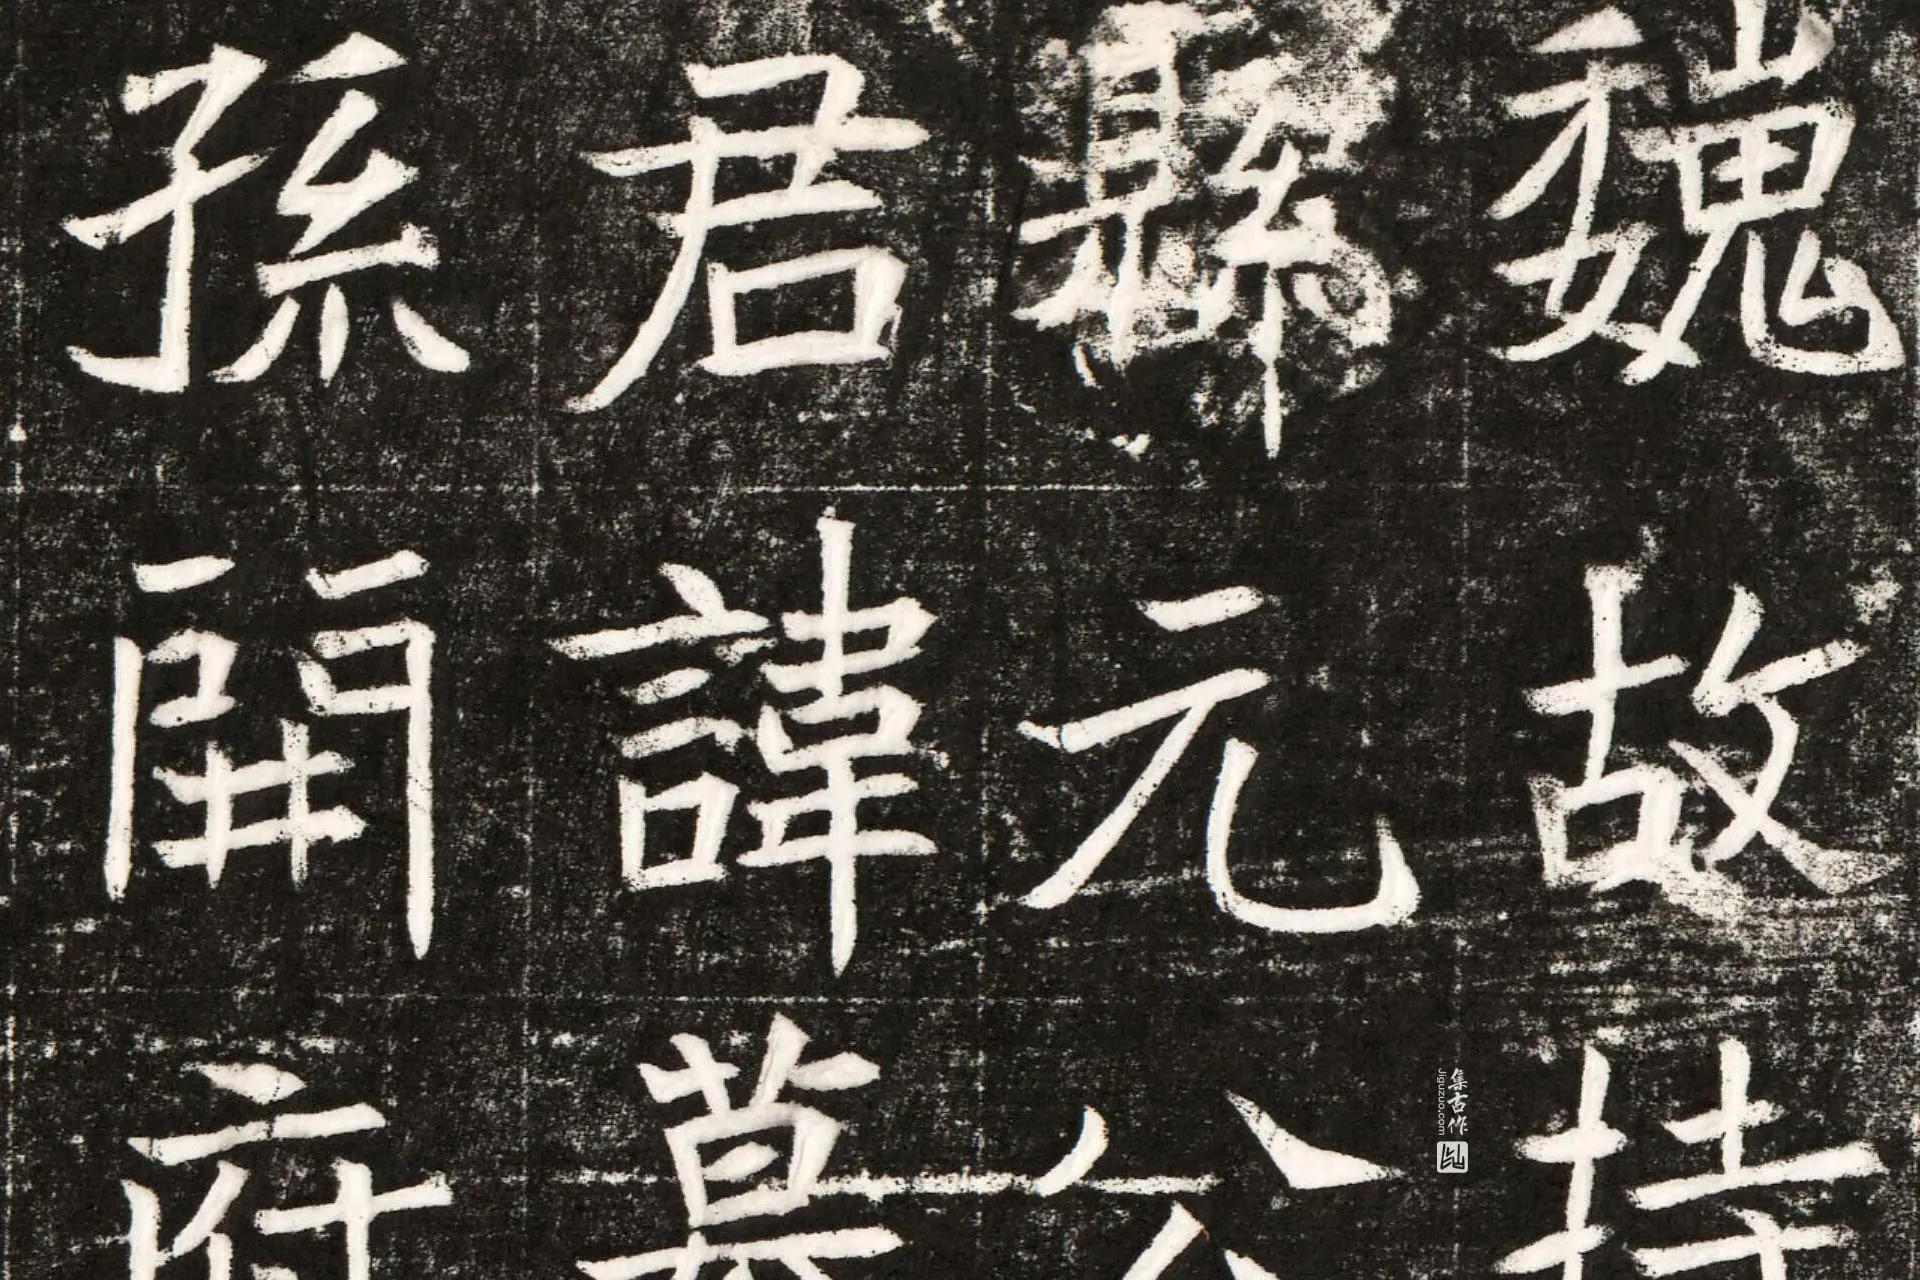 魏故持
縣元公
君諱墓
孫開府
集古作
Jiguzuo.com